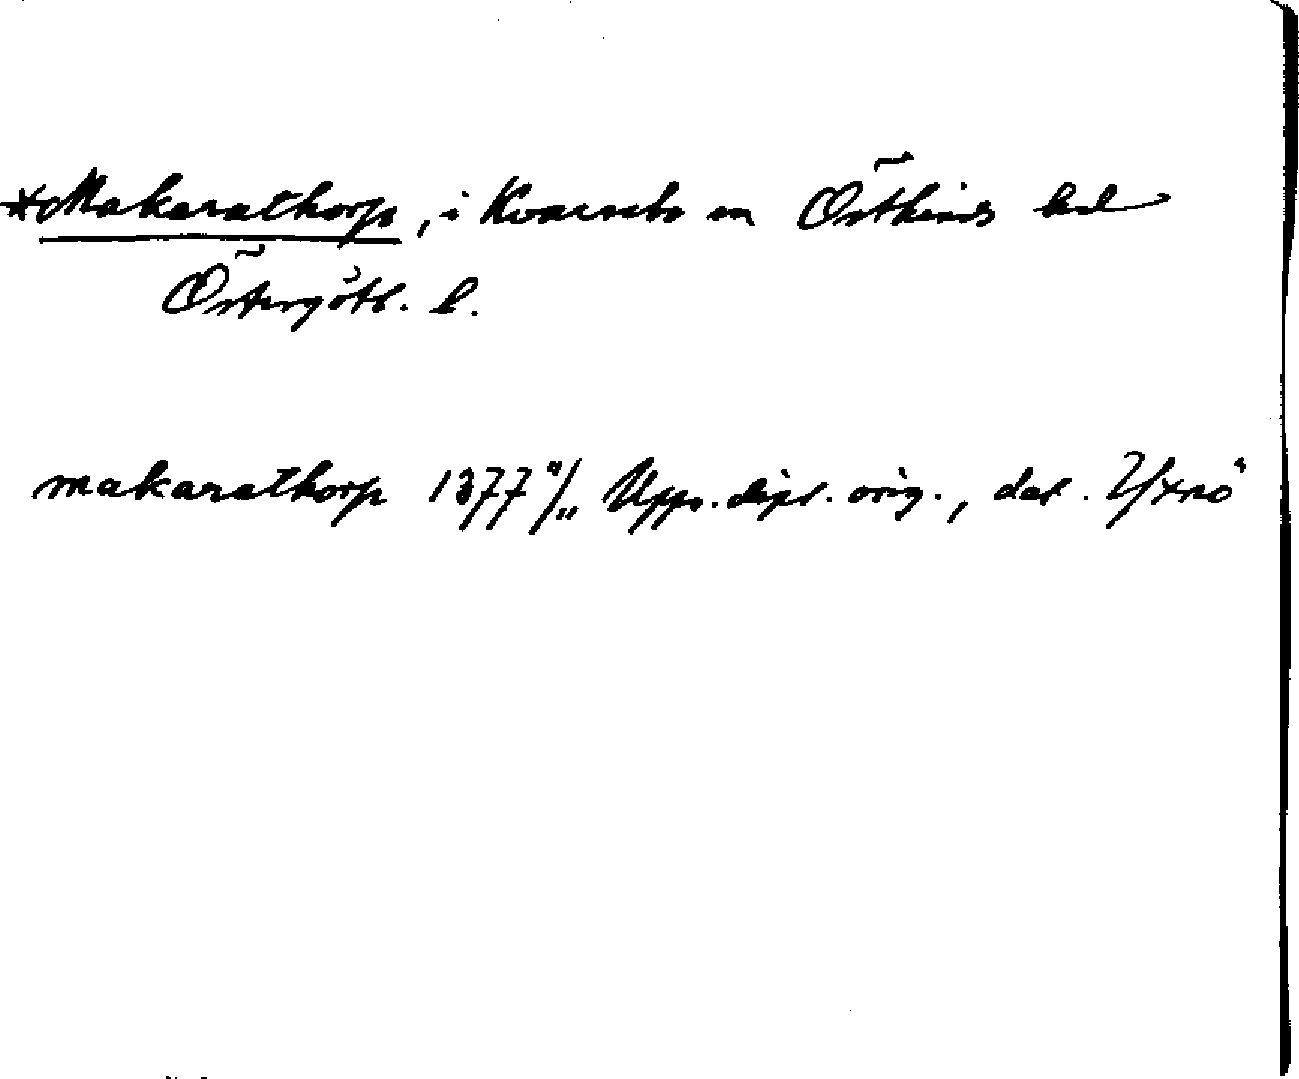 *Makarathorp, i Kvarsebo sn Östkinds hd
Östergötl. l.
makarathorp 1377 11/11 Upps. dipl. orig., dat. Yxnö